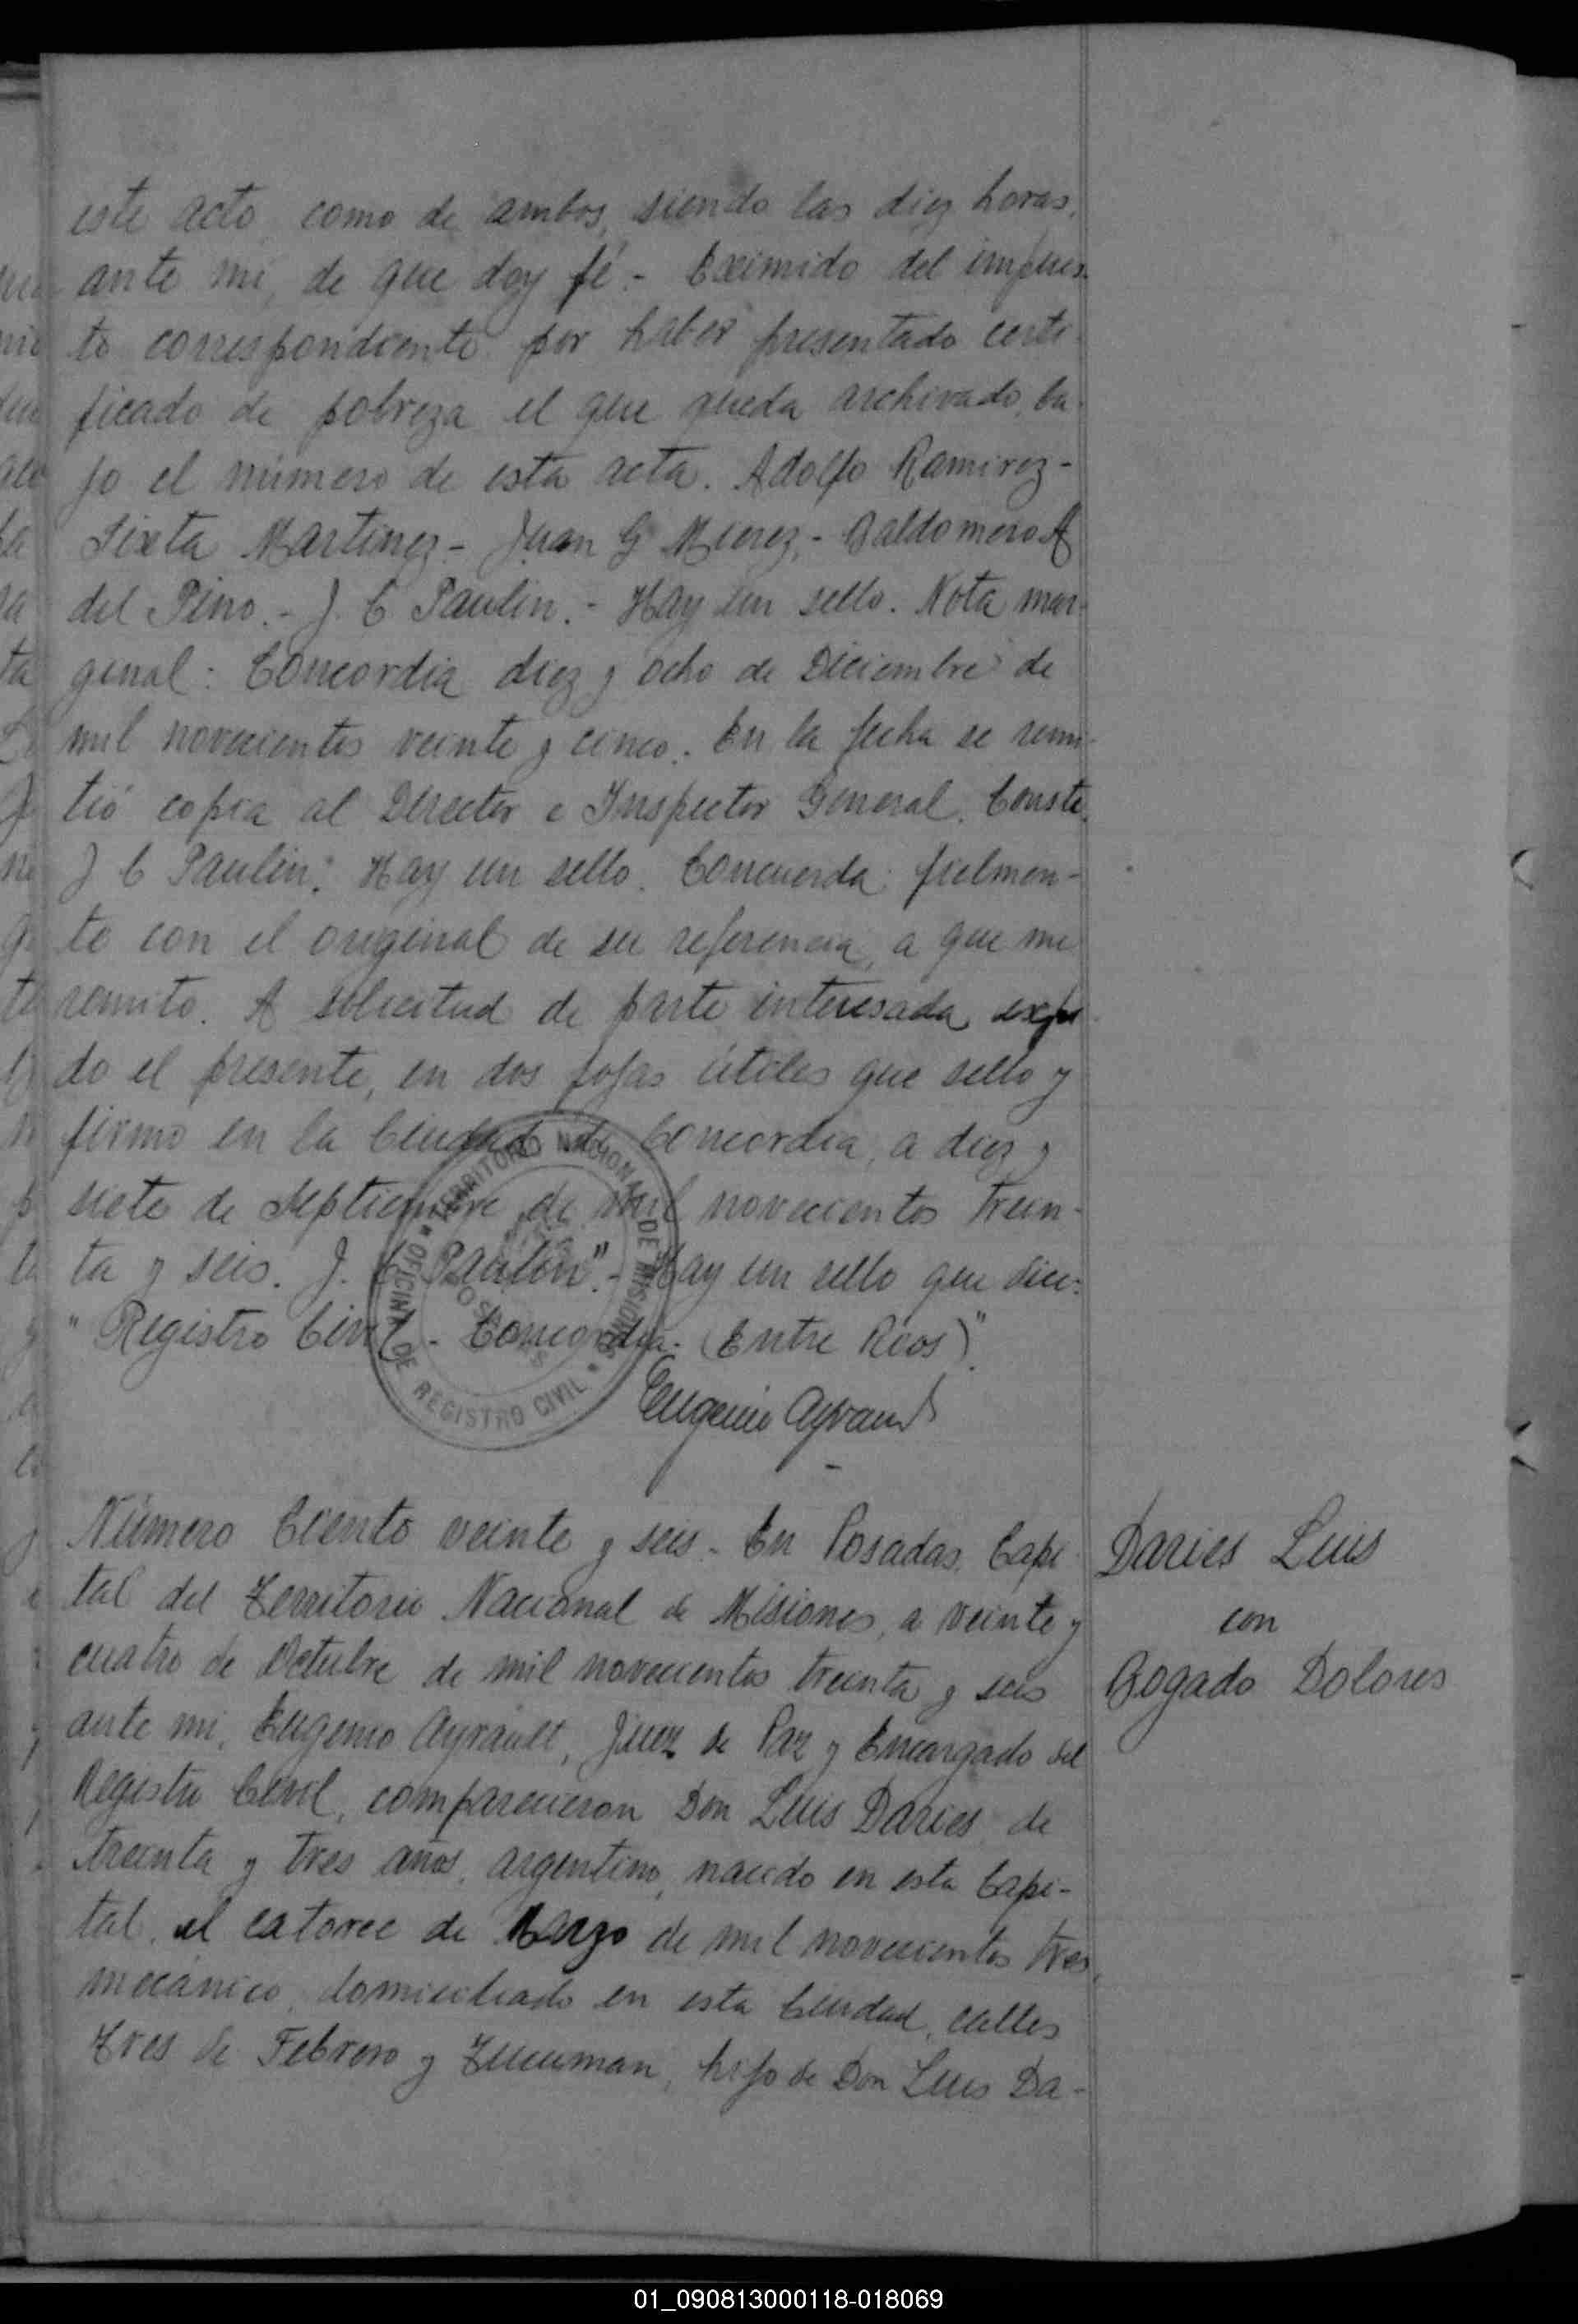 este acto, como de ambos, siendo las diez horas,
ante mi, de que doy fé.- Eximido del impues-
to correspondiente por haber presentado certi-
ficado de pobreza el que queda archivado, ba-
jo el número de esta acta. Adolfo Ramirez-
Sixta Martinez.- Juan G Mierez,- Baldomero A
del Pino.- J. C Paulin.- Hay un sello. Nota mar-
ginal: Concordia diez y ocho de Diciembre de
mil novecientos veinte y cinco. En la fecha se remi-
tió copia al Director e Inspector General. Conste.
J C Paulin. Hay un sello. Concuerda fielmen-
te con el original de su referencia, a que me
remito. A solicitud de parte interesada expi-
do el presente, en dos fojas útiles que sello y
firmo en la Ciudad de Concordia, a diez y
siete de Septiembre de mil novecientos trein-
ta y seis. J. C Paulin".- Hay un sello que dice:
"Registro Civil - Concordia. (Entre Rios)".
TERRITORIO NACIONAL DE MISIONES
POSADAS
OFICINA DE REGISTRO CIVIL
Eugenio Ayrault
Número Ciento veinte y seis.- En Posadas, Capi-
tal del Territorio Nacional de Misiones, a veinte y
cuatro de Octubre de mil novecientos treinta y seis
ante mi, Eugenio Ayrault, Juez de Paz y Encargado del
Registro Civil, comparecieron Don Luis Daries, de
treinta y tres años, argentino, nacido en esta Capi-
tal, el catorce de Marzo de mil novecientos tres,
mecánico, domiciliado en esta Ciudad, calles
Tres de Febrero y Tucuman, hijo de Don Luis Da-
Daries Luis
con
Bogado Dolores
01_090813000118-018069